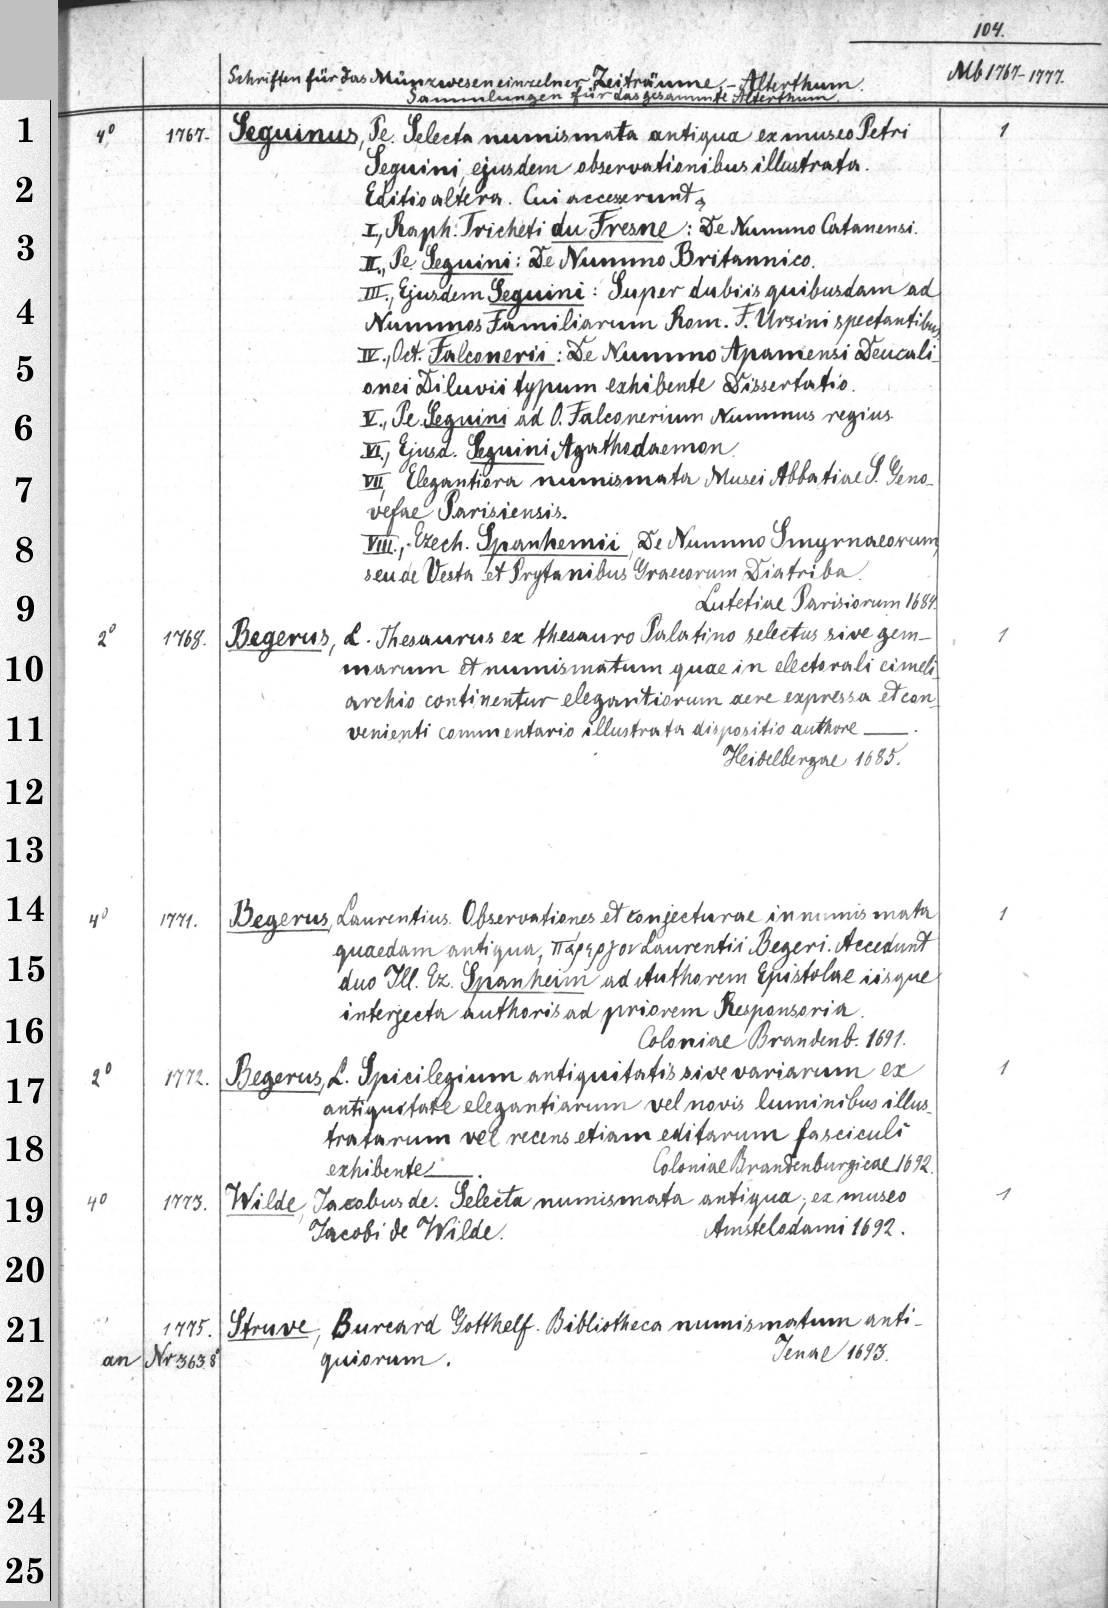 104.
Schriften für das Münzwesen einzelner Zeiträume. - Alterthum.
Mb 1767-1777.
Sammlungen für das gesammte Alterthum
1 4° 1767. Seguinus, Pe. Selecta numismata antiqua ex museo Petri 1
Seguini, ejusdem observationibus illustrata.
2 Editio altera. Cui accezerunt,
I., Raph. Tricheti du Fresne : De Nummo Catanensi.
3 II., Pe. Seguini : De Nummo Britannico.
III., Ejusdem Seguini : Super dubiis quibusdam ad
4 Nummos Familiarum Rom. F. Ursini spectantibus,
IV., Oct. Falconerii : De Nummo Apamensi Deucali-
5 onei Diluvii typum exhibente Dissertatio.
V., Pe. Seguini ad O. Falconerium Nummus regius.
6 VI., Ejusd. Seguini Agathodaemon
VII, Elegantiora numismata Musei Abbatiae S. Geno-
7 vefae Parisiensis.
VIII., Ezech. Spanhemii, De Nummo Smyrnaeorum,
8 seu de Vesta et Prytanibus Graecorum Diatriba.
9 Lutetiae Parisiorum 1684.
2° 1768. Begerus, L. Thesaurus ex thesauro Palatino selectus sive gem- 1
10 marum et numismatum quae in electorali cimeli-
archio continentur elegantiorum aere expressa et con-
11 venienti commentario illustrata dispositio authore ——.
Heidelbergae 1685.
12
13
14 4° 1771. Begerus, Laurentius. Observationes et conjecturae in numismata 1
quaedam antiqua, πάρεργον Laurentii Begeri. Accedunt
15 duo Ill. Ez. Spanheim ad Authorem Epistolae iisque
interjecta authoris ad priorem Responsoria.
16 Coloniae Brandenb. 1691.
17 2° 1772. Begerus, L. Spicilegium antiquitatis sive variarum ex 1
antiquitate elegantiarum vel novis luminibus illus-
18 tratarum vel recens etiam editarum fasciculi
exhibente ——. Coloniae Brandenburgicae 1692.
19 4° 1773. Wilde, Jacobus de. Selecta numismata antiqua; ex museo 1
Jacobi de Wilde. Amstelodami 1692.
20
21 1775. Struve, Burcard Gotthelf. Bibliotheca numismatum anti-
an Nr 363 8° quiorum. Jenae 1693.
22
23
24
25